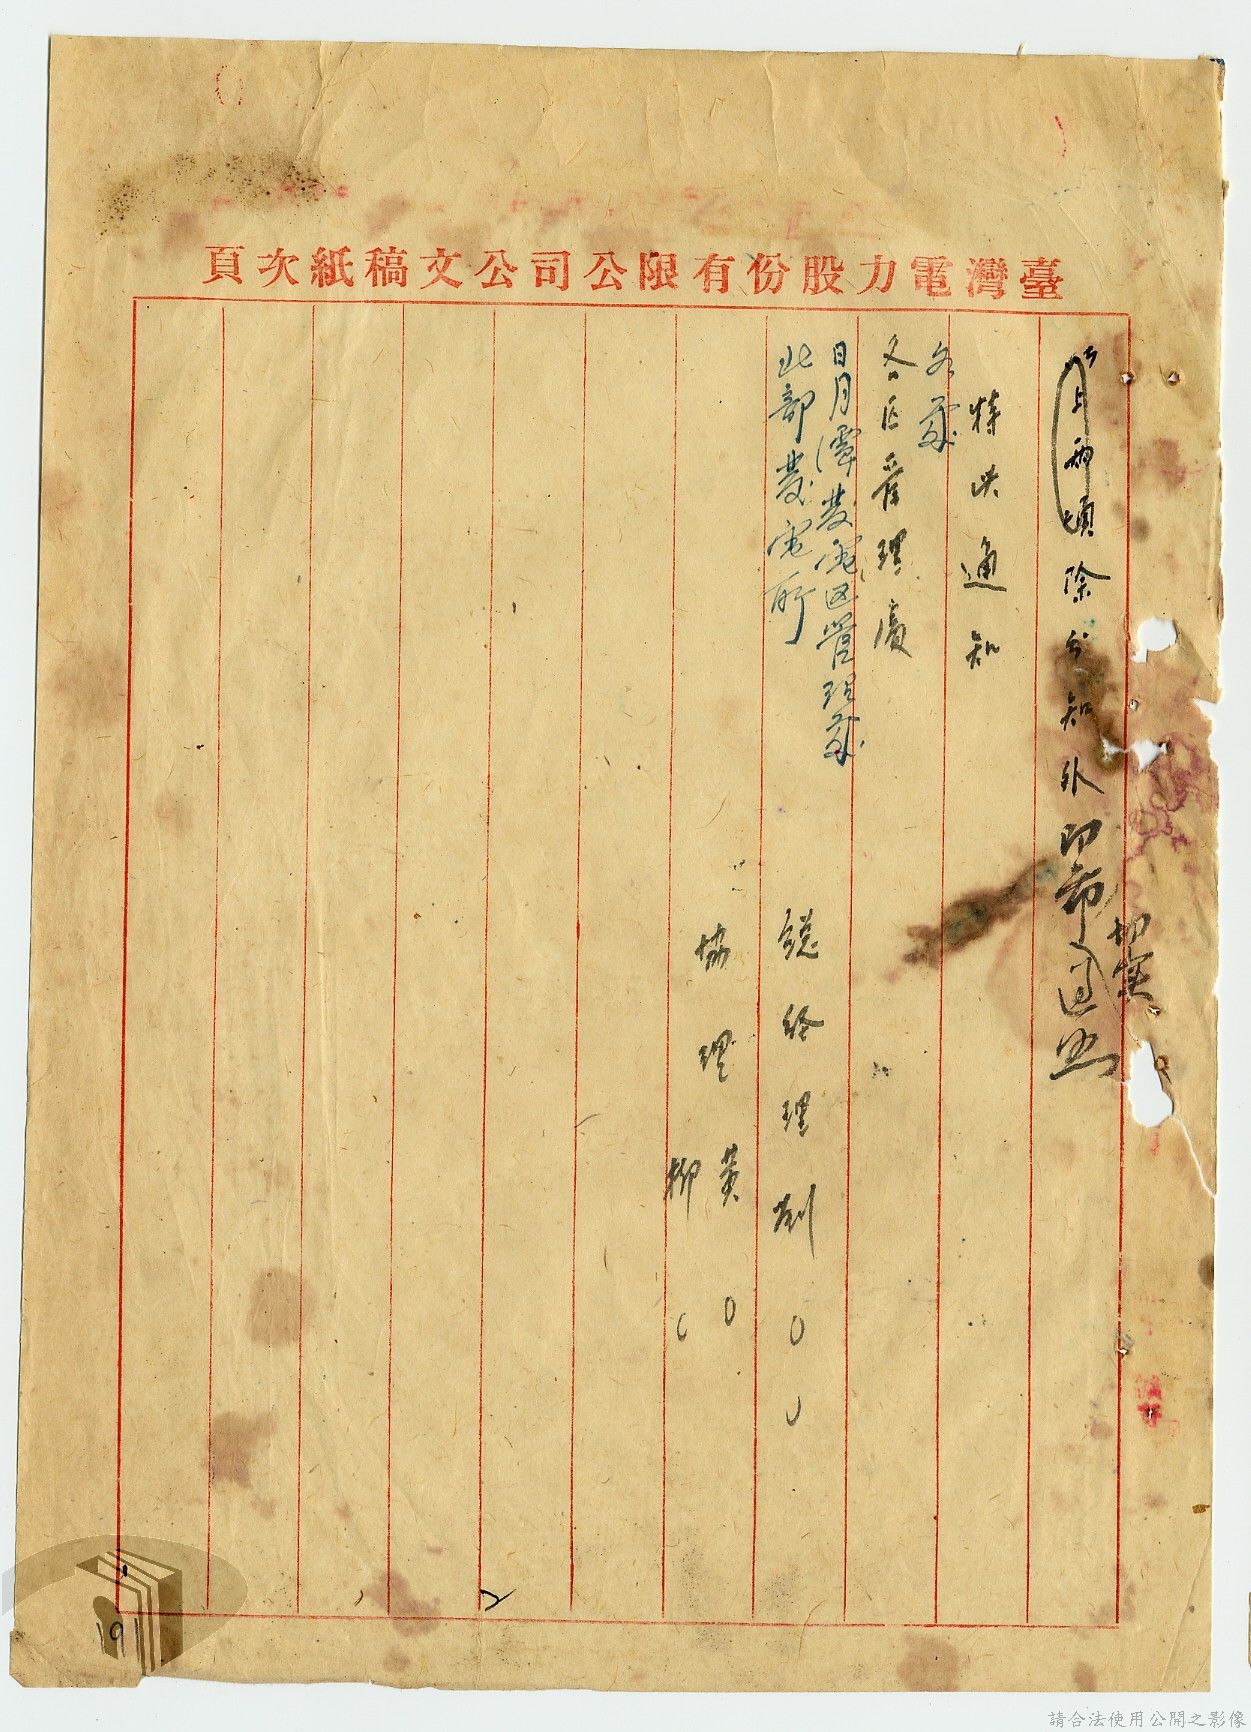 臺灣電力股份有限公司公文稿紙次頁
上兩項除分知外即希切實遵照
特此通知
各處
各區管理處
日月潭發電區管理處
北部發電所
總經理劉〇〇
協理黃〇
柳〇
191
請合法使用公開之影像